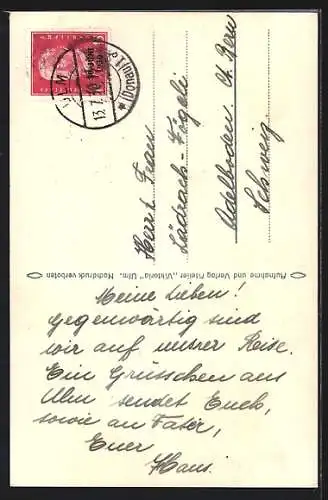 ULM
(Donau) 1
13.7.30
Herrn & Frau
Lädrach-Zögeli
Adelboden. Ct. Bern
Schweiz.
Aufnahme und Verlag Atelier „Viktoria" Ulm. Nachdruck verboten
Meine Lieben!
Gegenwärtig sind
wir auf unsrer Reise.
Ein Grüsschen aus
Ulm sendet Euch,
sowie an Fater,
Euer
Hans.